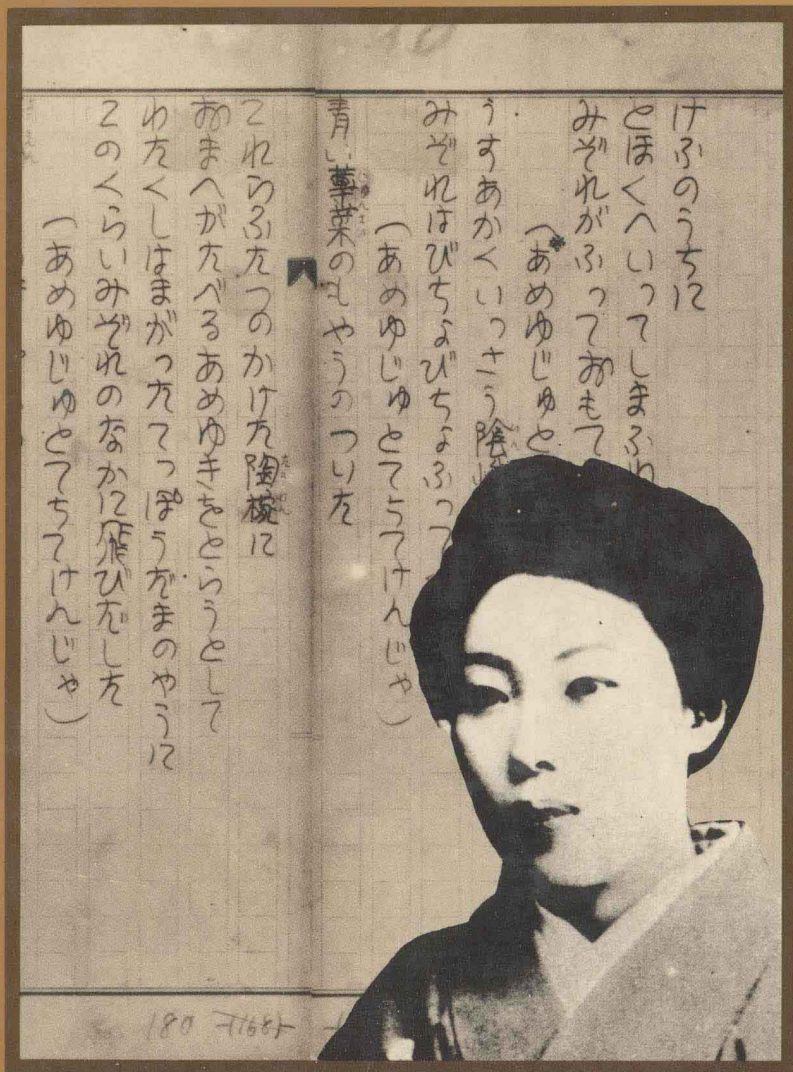 けふのうちに
とほくへいってしまふわ
みぞれがふっておもて
(あめゆじゅと
うすあかくいっさう陰
みぞれはびちょびちょふって
(あめゆじゅとてちてけんじゃ)
青い蓴菜のもやうのついた
これらふたつのかけた陶椀に
おまへがたべるあめゆきをとらうとして
わたくしはまがったてっぽうだまのやうに
このくらいみぞれのなかに飛びだした
(あめゆじゅとてちてけんじゃ)
180